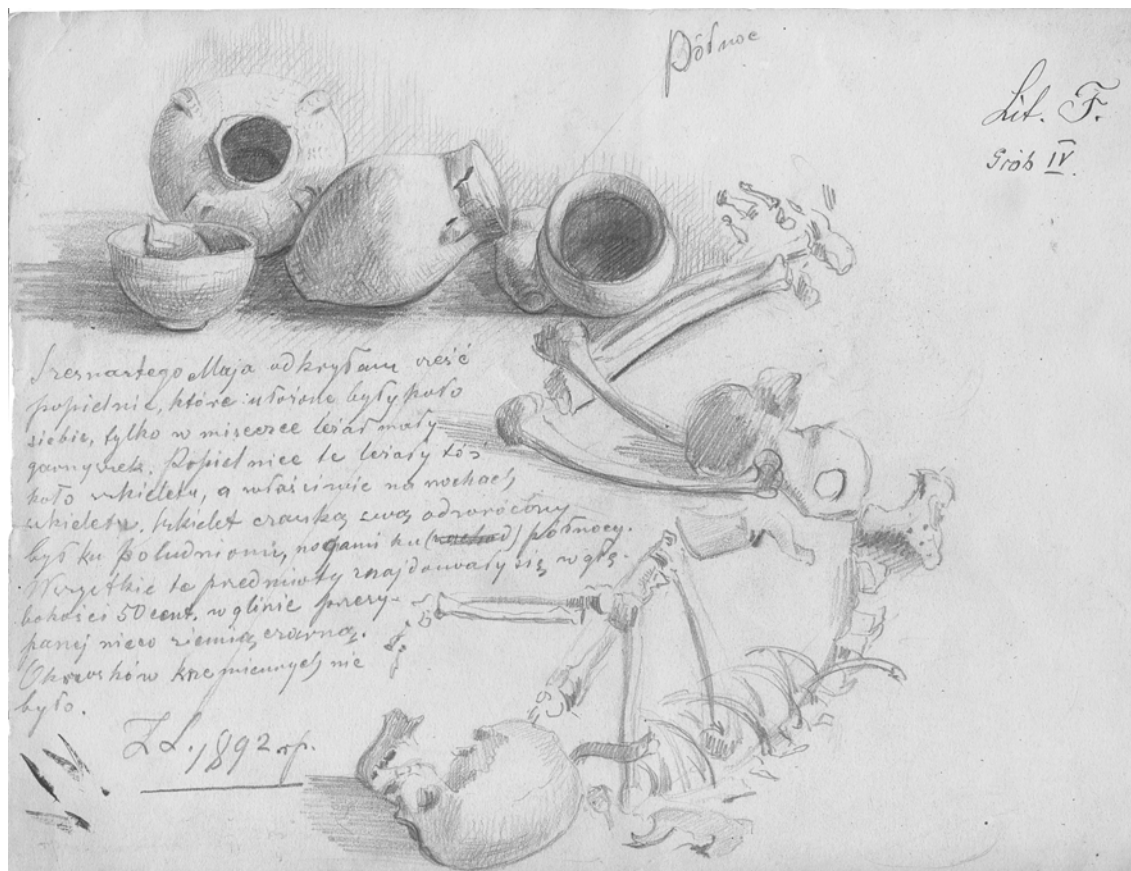 Północ
Lit. F.
Grób IV.
Szesnastego Maja odkryłam sześć
popielnic, które ułożone były koło
siebie, tylko w miseczce leżał mały
garnyszek. Popielnice te leżały tóż
koło szkieletu, a właściwie na nochach
szkieletu. Szkielet czaszką swą odwrócony
był ku południowi, nogami ku (wschod) północy.
Wszystkie te przedmioty znajdowały się w głę-
bokości 50 cent. w glinie przesy-
panej nieco ziemią czarną.
Okrzesków krzemiennych nie
było.
1892 r.